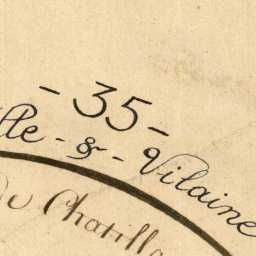 - 35 -
lle - & - Vilaine
de Chatilla